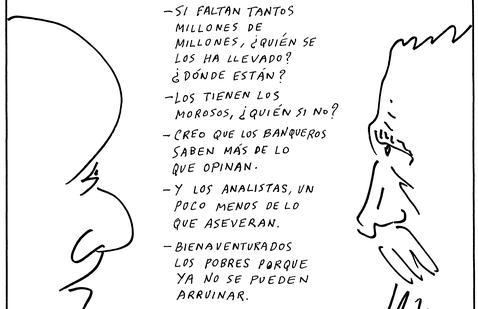 – SI FALTAN TANTOS
MILLONES DE
MILLONES, ¿QUIÉN SE
LOS HA LLEVADO?
¿DÓNDE ESTÁN?
– LOS TIENEN LOS
MOROSOS, ¿QUIÉN SI NO?
– CREO QUE LOS BANQUEROS
SABEN MÁS DE LO
QUE OPINAN.
– Y LOS ANALISTAS, UN
POCO MENOS DE LO
QUE ASEVERAN.
– BIENAVENTURADOS
LOS POBRES PORQUE
YA NO SE PUEDEN
ARRUINAR.